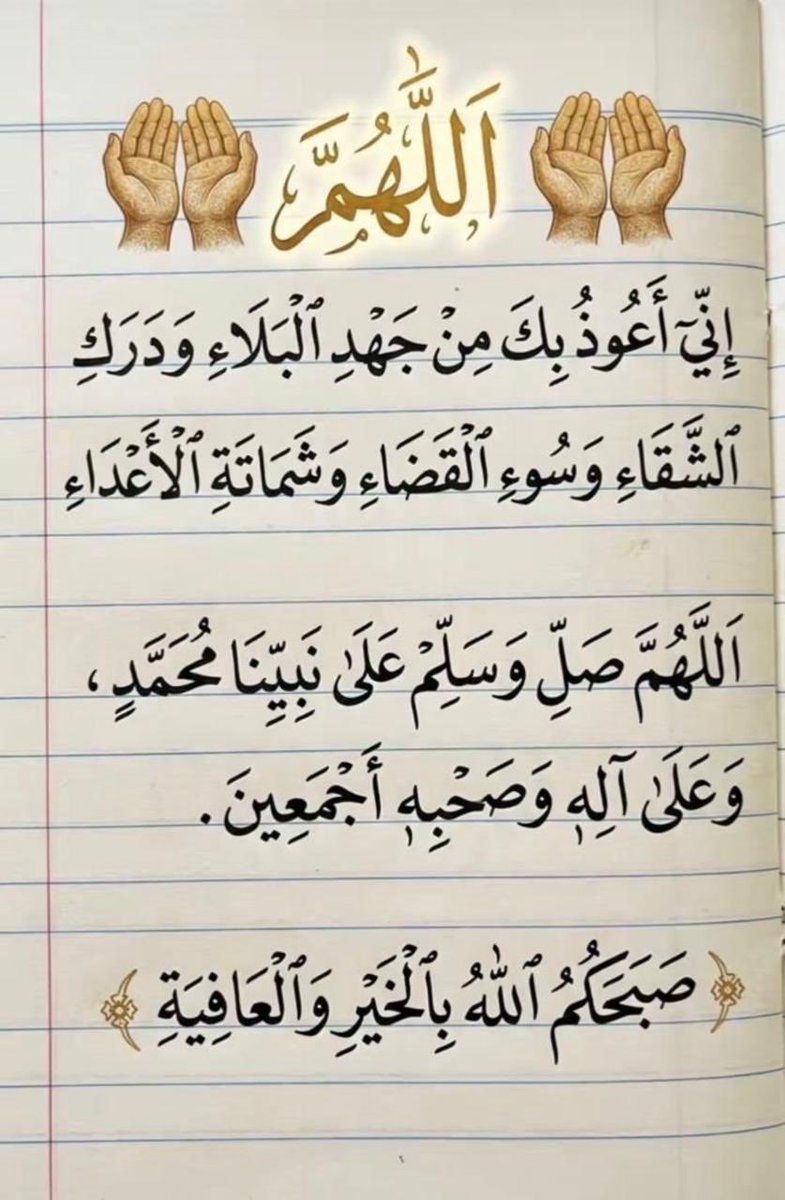 اَللّٰهُمَّ
إِنِّيٓ أَعُوذُ بِكَ مِنْ جَهْدِ ٱلْبَلَاءِ وَدَرَكِ
ٱلشَّقَاءِ وَسُوءِ ٱلْقَضَاءِ وَشَمَاتَةِ ٱلْأَعْدَاءِ
اَللَّهُمَّ صَلِّ وَسَلِّمْ عَلَىٰ نَبِيِّنَا مُحَمَّدٍ،
وَعَلَىٰ آلِهٖ وَصَحْبِهٖ أَجْمَعِينَ.
صَبَحَكُمُ ٱللّٰهُ بِٱلْخَيْرِ وَٱلْعَافِيَةِ